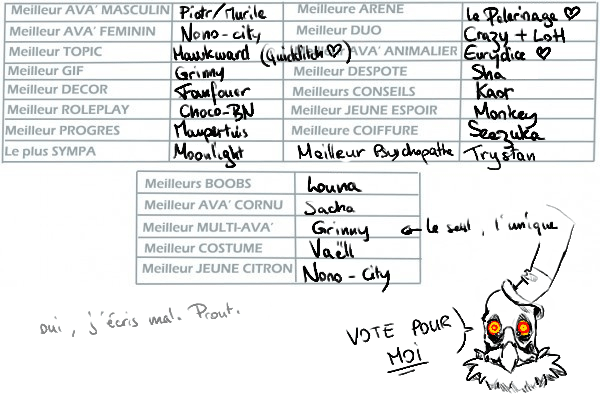 Meilleur AVA' MASCULIN Piotr/Murile Meilleure ARENE Le Pelerinage ♡
Meilleur AVA' FEMININ Nono-city Meilleur DUO Crazy + Lott
Meilleur TOPIC Hawkward (Quidditch♡) AVA' ANIMALIER Eurydice ♡
Meilleur GIF Grinny Meilleur DESPOTE Sha
Meilleur DECOR Fanfouer Meilleurs CONSEILS Kaor
Meilleur ROLEPLAY Choco-BN Meilleur JEUNE ESPOIR Monkey
Meilleur PROGRES Maupertuis Meilleure COIFFURE Seazuka
Le plus SYMPA Moonlight Meilleur Psychopathe Trystan
Meilleurs BOOBS Louna
Meilleur AVA' CORNU Sacha
Meilleur MULTI-AVA' Grinny ← le seul, l'unique
Meilleur COSTUME Vaëll
Meilleur JEUNE CITRON Nono-City
oui, j'écris mal. Prout.
VOTE POUR
MOI